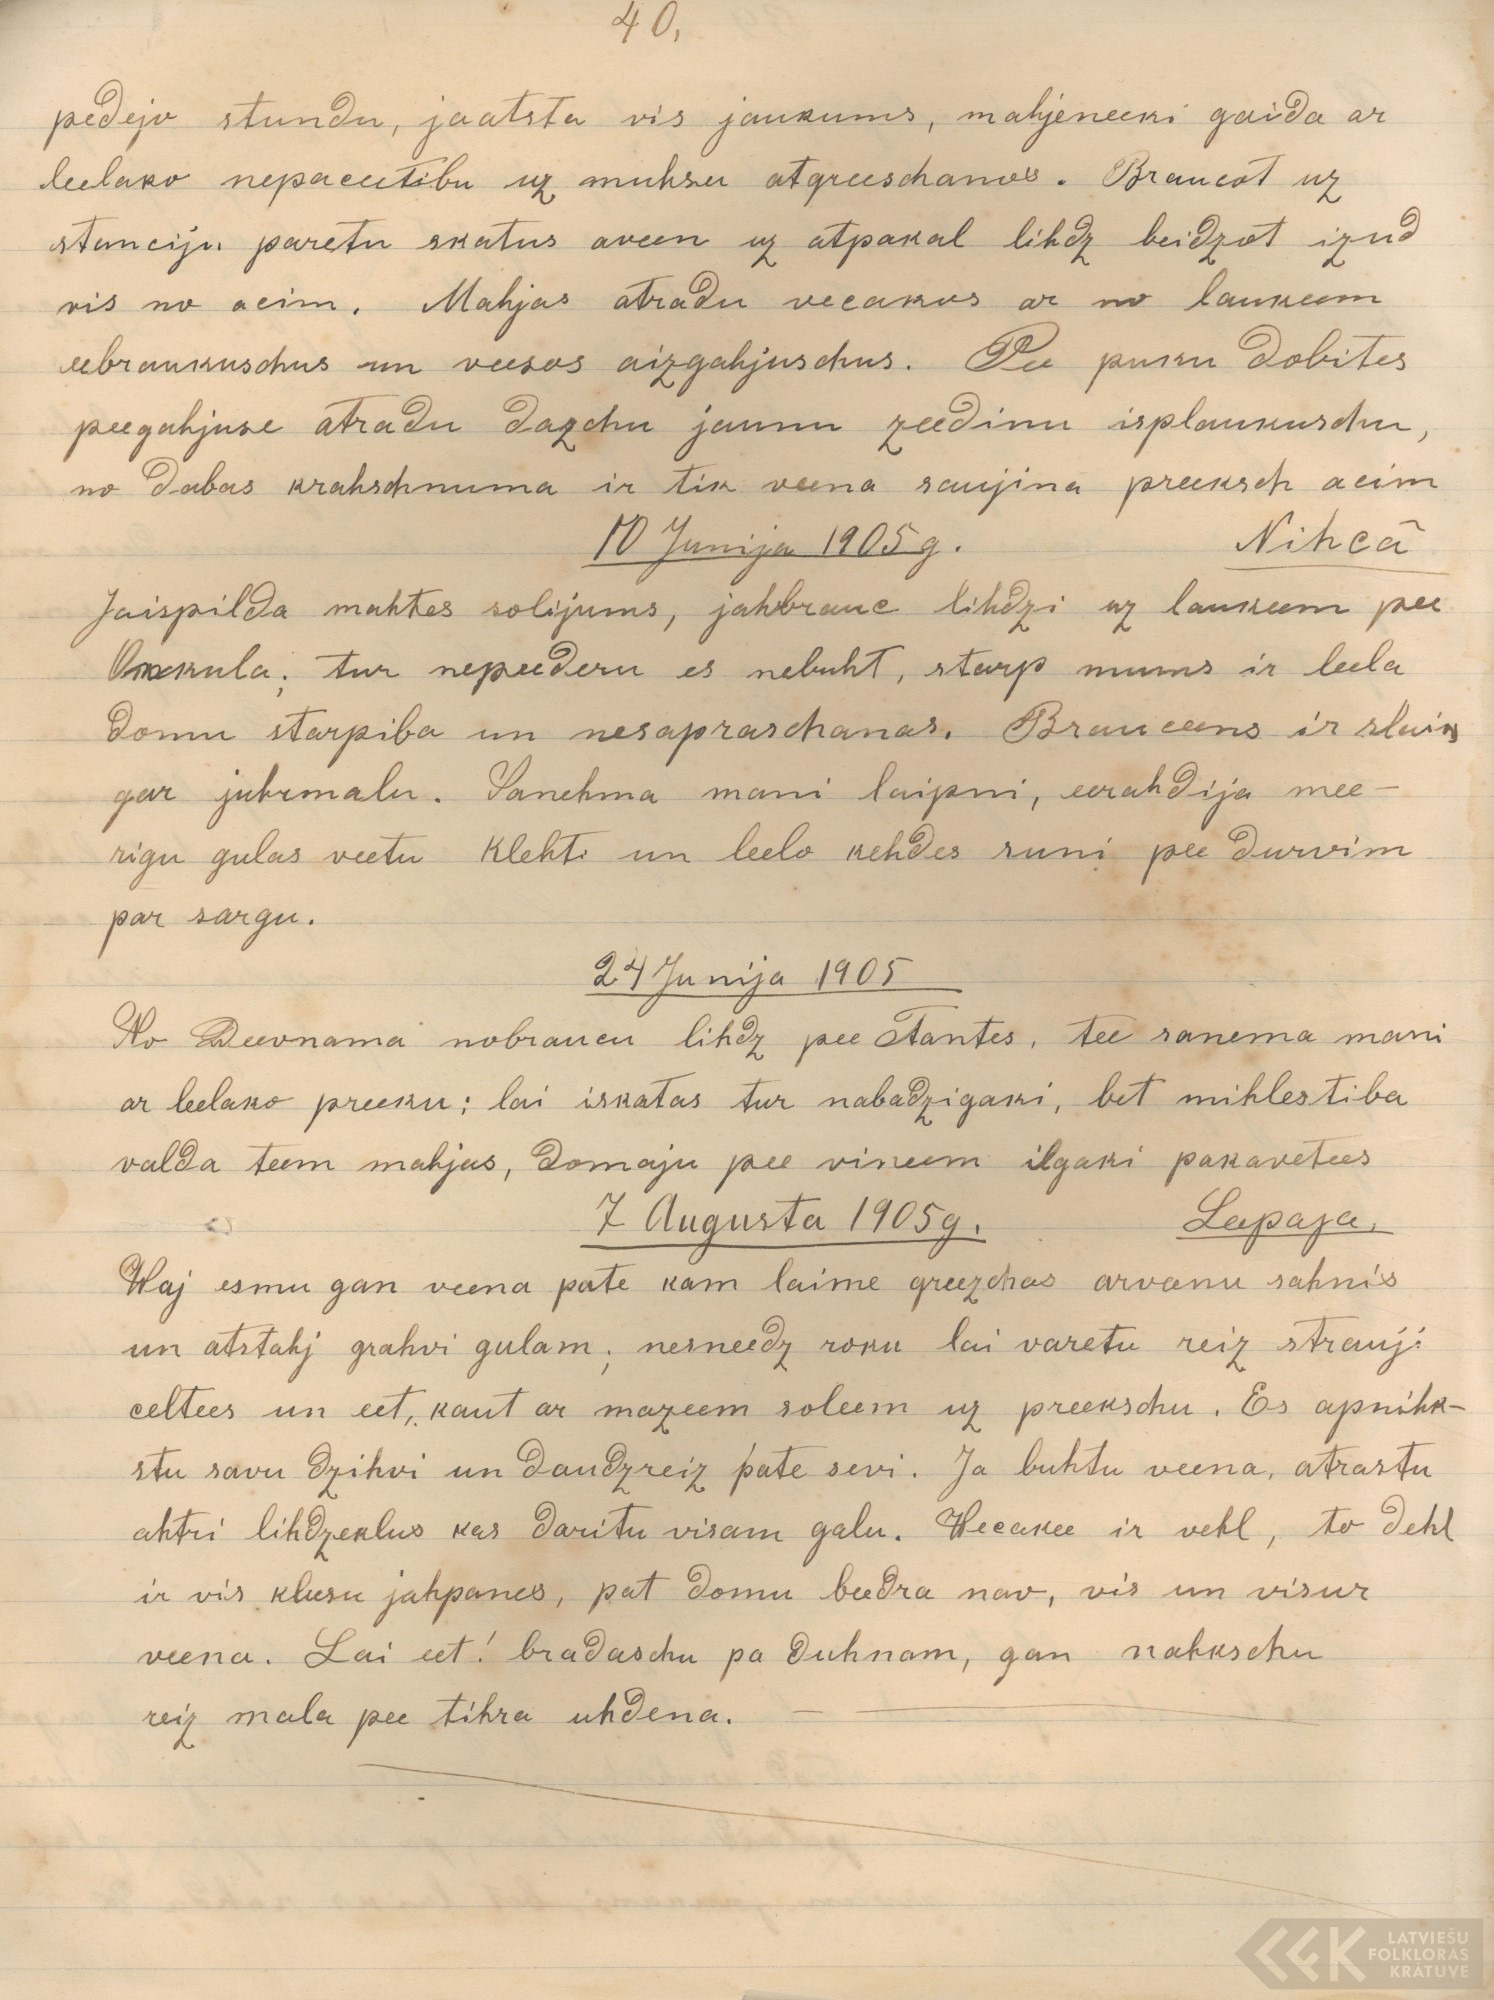 40,
pedejo stundu, jaatsta vis jaukums, mahjeneeki gaida ar
leelako nepaceetibu uz muhsu atgreeschanos. Braucot uz
stanciju paretu skatus aveen uz atpakal lihdz beidzot izud
vis no acim. Mahjas atradu vecakus ar no laukeem
eebraukuschus un veesos aizgahjuschus. Pee puku dobites
peegahjuse atradu dazchu jaunu zeedinu isplaukuschu,
no dabas krahschnuma ir tik veena saujina preeksch acim
10 Junija 1905 g. Nihcā
Jaispilda mahtes solijums, jahbrauc lihdzi uz laukeem pee
tur nepeederu es nebuht, starp mums ir leela
domu starpiba un nesapraschanas. Brauceens ir slains
gar juhrmalu. Sanehma mani laipni, eerahdija mee-
rigu gulas veetu klehti un leelo kehdes suni pee durvim
par sargu.
24 Junija 1905
No Deevnama nobraucu lihdz pee Tantes, tee sanema mani
ar leelako preeku; lai iskatas tur nabadzigaki, bet mihlestiba
valda teem mahjas, domaju pee vineem ilgaki pakavetees
7 Augusta 1905g. Leepaja.
Waj esmu gan veena pate kam laime greezchas arveenu sahnis
un atstahj grahvi gulam; nesneedz roku lai varetu reiz strauji
celtees un eet, kaut ar mazeem soleem uz preekschu. Es apnihk-
stu savu dzihvi un daudzreiz pate sevi. Ja buhtu veena, atrastu
ahtri lihdzeklus kas daritu visam galu. Wecakee ir vehl, to dehl
ir vis klusu jahpanes, pat domu beedra nav, vis un visur
veena. Lai eet! bradaschu pa duhnam, gan nahkschu
reiz mala pee tihra uhdena.
LATVIEŠU
FOLKLORAS
KRĀTUVE